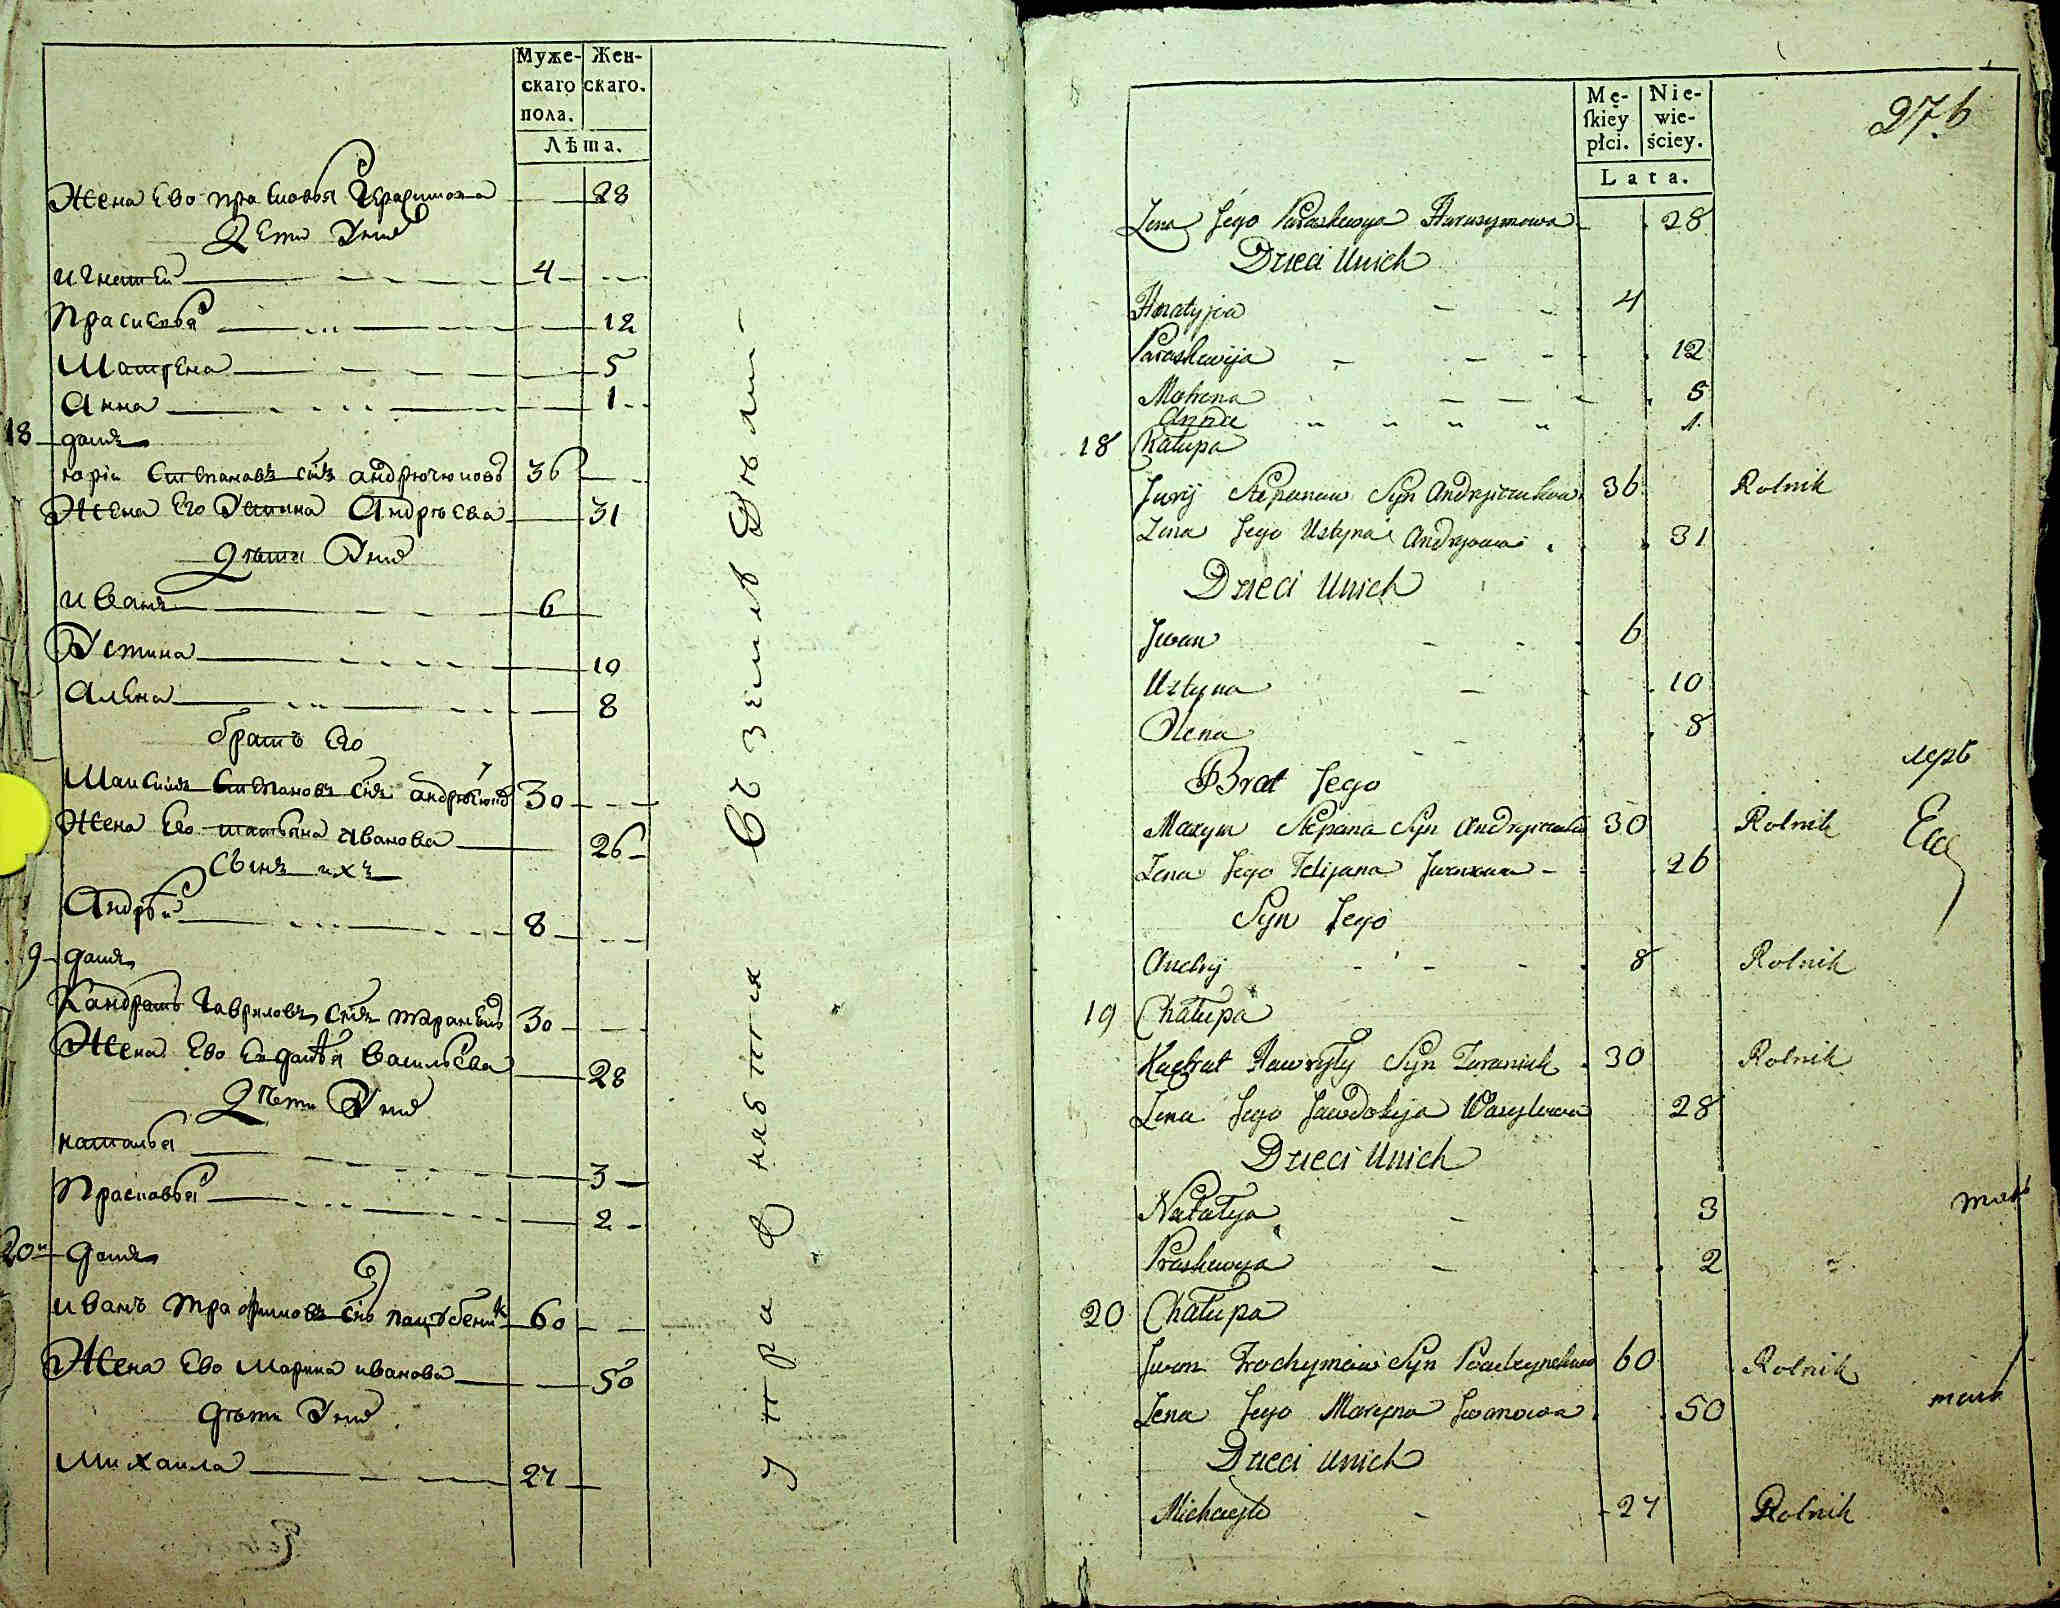 Муже- Жен-
скаго скаго.
пола.
Лѣта.
Жена Ево прасковья Герасимова 28
Дети Уних
игнатей 4
Прасковья 12
Матрена 5
Анна 1
18 домъ
юрiи Степановъ сынъ андрючюковъ 36
Жена Его Устина Андрѣева 31
дѣти Уних
иванъ 6
Устина 10
Алена 8
братъ Его
Максимъ Степановъ сынъ 30
Жена Его татьяна иванова 26
Сынъ ихъ
Андрѣй 8
9 домъ
Кандратъ Гавриловъ сынъ таранюкъ 30
Жена Ево Евдокѣя Васильева 28
Дети Уних
наталья 3
Прасковья 2
20 домъ
иванъ трафимовъ сынъ 60
Жена Ево Марина иванова 50
дѣти Уних
Михаила 27
Mę- Nie-
ſkiey wie-
płci. ściey.
Lata.
276
Zena Jego Paraskewya Harasymowa 28
Dzieci Unich
Hnatyja 4
Paraskewija 12
Motrena 5
Anna 1
18 Chałupa
Jurij Stepanow Syn Andryiczukow 36 Rolnik
Zena Jego Ustyna Andryowa 31
Dzieci Unich
Jwan 6
Ustyna 10
Olena 8
Brat Jego
Maxym Stepana Syn 30 Rolnik
Zena Jego Tetijana Jwanowa 26
Syn Jego
Andrij 8 Rolnik
19 Chałupa
Kadrat Hawryły Syn Taraniuk 30 Rolnik
Zena Jego Jawdokija Wasylowa 28
Dzieci Unich
Natalya 3
Praskewija 2
20 Chałupa
Jwan Trochymow Syn 60 Rolnik
Zena Jego Maryna Jwanowa 50
Dzieci Unich
Michayło 27 Rolnik